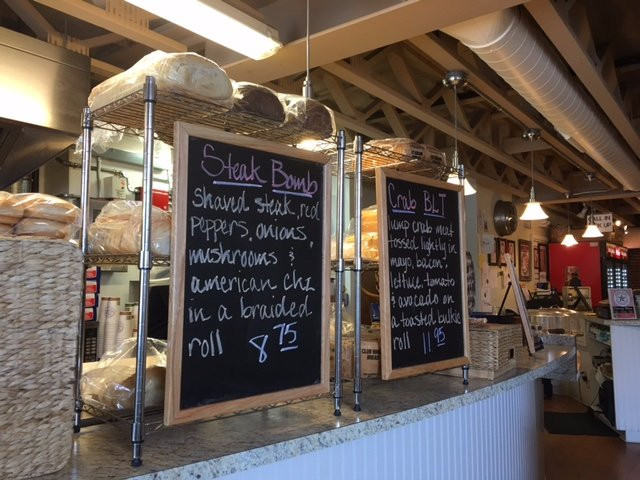 Steak Bomb
Shaved steak, red
peppers, onions,
mushrooms &
american chz
in a braided
roll 8 75
Crab BLT
lump crab meat
tossed lightly in
mayo, bacon,
lettuce, tomato
& avocado on
a toasted bulkie
roll 11 95
CALL IN